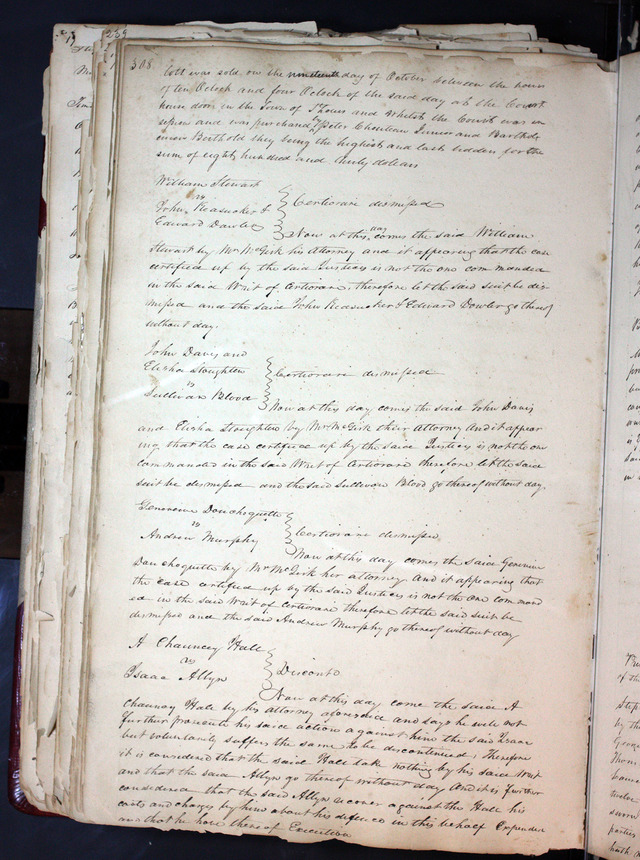 308
Lott was sold on the nineteenth day of October between the hours
of ten Oclock and four Oclock of the said day at the Court
house door in the Town of St Louis and whilst the Court was in
session and was purchased by Peter Chouteau Senior and Barthole
mew Berthold they being the highest and last bidders for the
sum of eight hundred and thirty dollars
William Stewart
vs
John Reasucker &
Edward Dowler
Certiorari dismissed
Now at this day comes the said William
Stewart by Mr McGirk his Attorney and it appearing that the case
certified up by the said Justices is not the one commanded
in the said Writ of Certiorari, therefore let the said suit be dis-
missed and the said John Reasucker & Edward Dowler go thereof
without day.
John Davis and
Elisha Stoughten
vs
Sullivan Blood
Certiorari dismissed
Now at this day comes the said John Davis
and Elisha Stoughten by Mr McGirk their Attorney and it appear
ing that the case certified up by the said Justices is not the one
commanded in the said Writ of Certiorari therefore let the said
suit be dismissed and the said Sullivan Blood go thereof without day.
Genevieve Donchoquette
vs
Andrew Murphy
Certiorari dismissed.
Now at this day comes the said Genevieve
Donchoquette by Mr McGirk her attorney and it appearing that
the case certified up by the said Justices is not the one command
ed in the said Writ of Certiorari therefore let the said suit be
dismissed and the said Andrew Murphy go thereof without day
A Chauncey Hall
vs
Isaac Allyn
Discont
Now at this day come the said A
Chauncy Hall by his attorney aforesaid and says he will not
further prosecute his said action against him the said Isaac
but voluntarily suffers the same to be discontinued, Therefore
it is considered that the said Hall take nothing by his said Writ
and that the said Allyn go thereof without day And it is further
considered that the said Allyn recover against the Hall his
costs and charges by him about his defence in this behalf Expended
and that he have thereof Execution